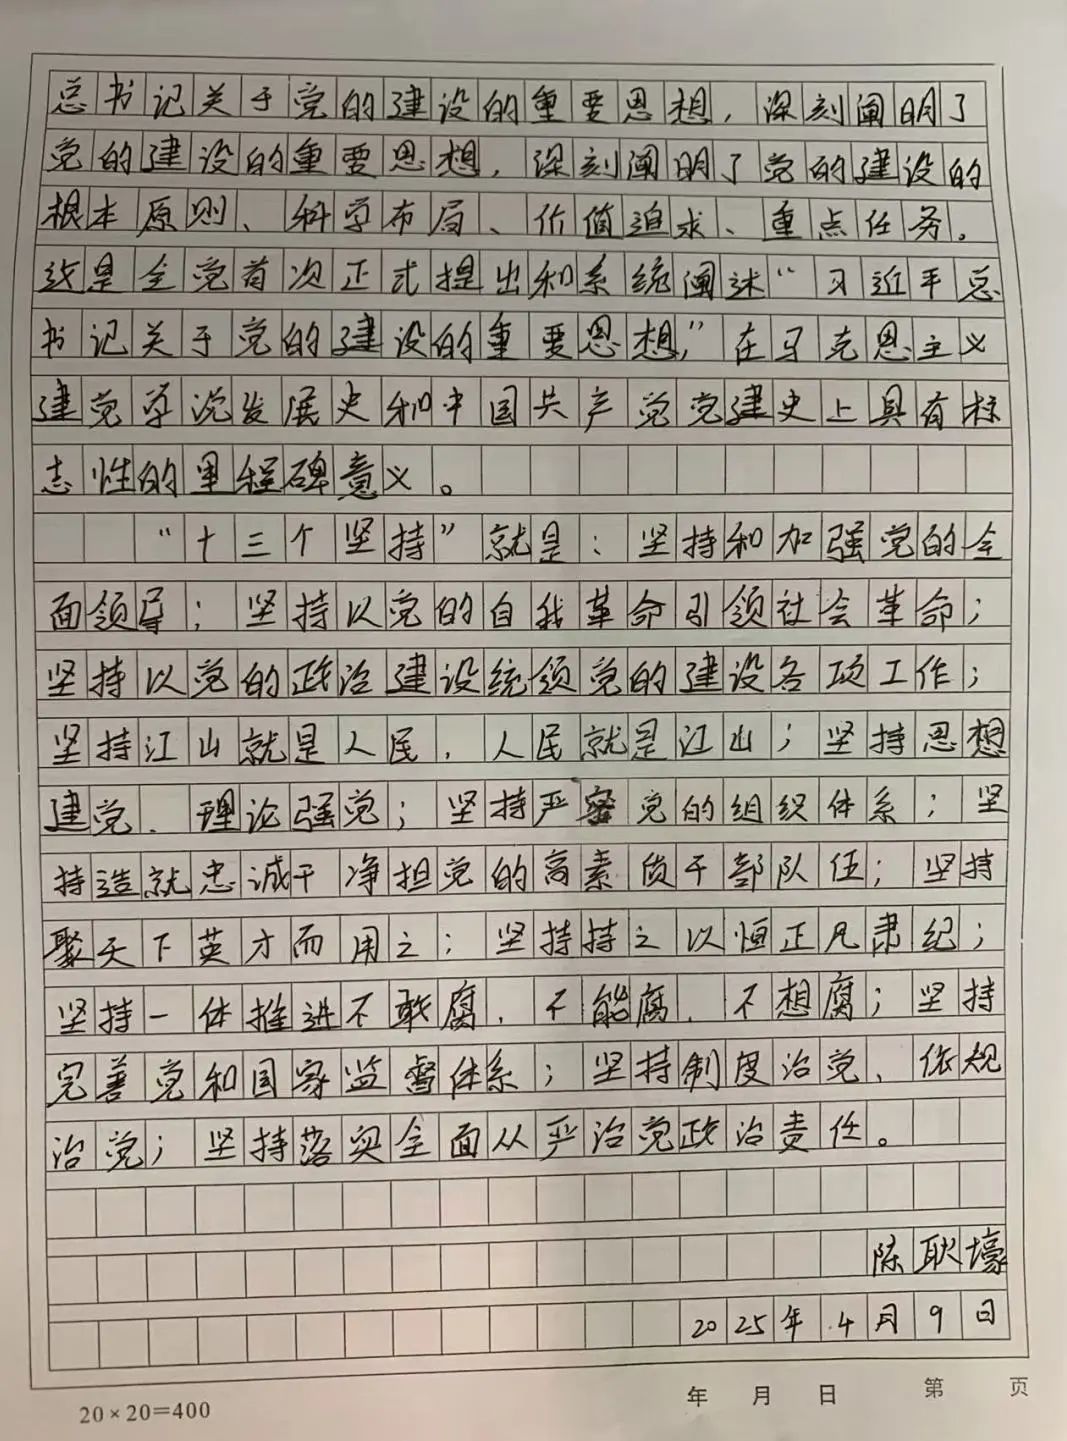 总书记关于党的建设的重要思想，深刻阐明了
党的建设的重要思想，深刻阐明了党的建设的
根本原则、科学布局、价值追求、重点任务。
这是全党首次正式提出和系统阐述“习近平总
书记关于党的建设的重要思想，”在马克思主义
建党学说发展史和中国共产党党建史上具有标
志性的里程碑意义。
“十三个坚持”就是：坚持和加强党的全
面领导；坚持以党的自我革命引领社会革命；
坚持以党的政治建设统领党的建设各项工作；
坚持江山就是人民，人民就是江山；坚持思想
建党、理论强党；坚持严密党的组织体系；坚
持造就忠诚干净担党的高素质干部队伍；坚持
聚天下英才而用之；坚持持之以恒正风肃纪；
坚持一体推进不敢腐、不能腐、不想腐；坚持
完善党和国家监督体系；坚持制度治党、依规
治党；坚持落实全面从严治党政治责任。
陈耿壕
2025年4月9日
年 月 日 第 页
20×20=400